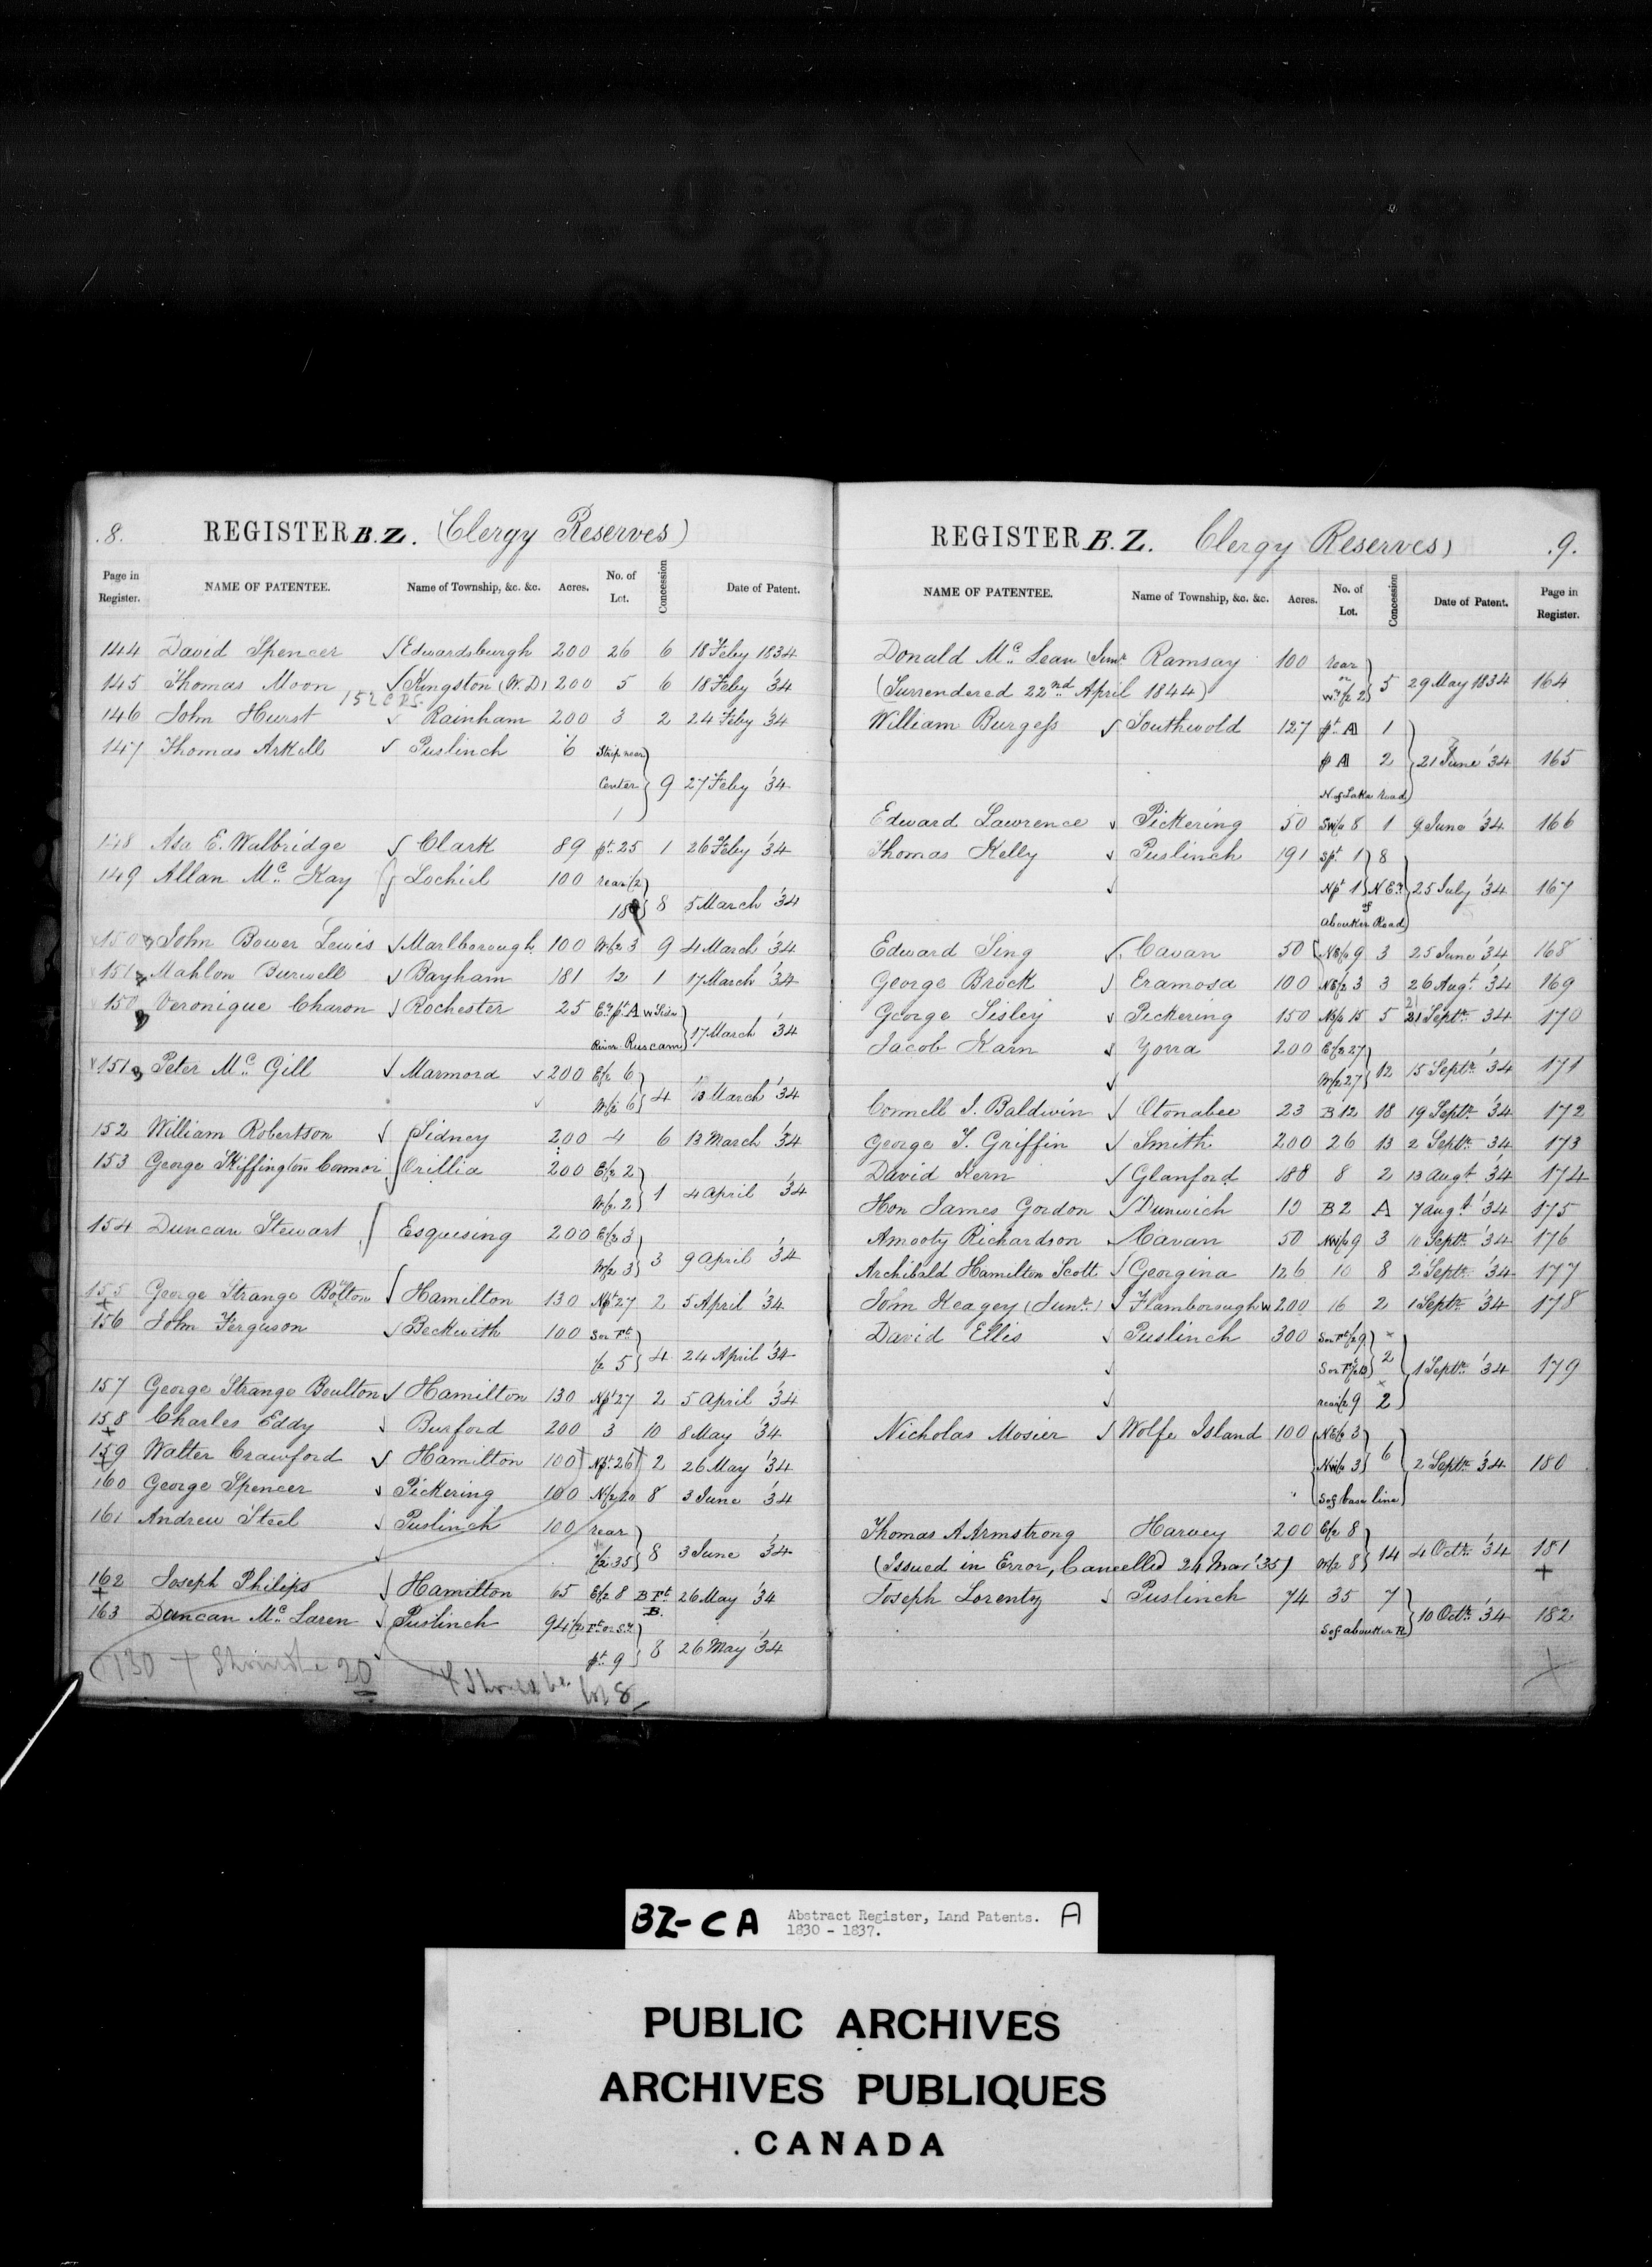 8.
REGISTER B.Z. (Clergy Reserves)
Page in Register. NAME OF PATENTEE. Name of Township, &c. &c. Acres. No. of Lot. Concession Date of Patent.
144 David Spencer √ Edwardsburgh 200 26 6 18 Feby 1834
145 Thomas Moon √ Kingston (W.D) 200 5 6 18 Feby '34
146 John Hurst √ Rainham 200 3 2 24 Feby '34
147 Thomas Arkell √ Puslinch 6 Strip near
Center } 9 27 Feby '34
1
148 Asa E. Walbridge √ Clark 89 pt. 25 1 26 Feby '34
149 Allan Mc Kay Lochiel 100 rear 1/2
18 } 8 5 March '34
150 John Bower Lewis √ Marlborough 100 W/2 3 9 4 March '34
151 Mahlon Burwell √ Bayham 181 12 1 17 March '34
150 Veronique Charon √ Rochester 25 Er. pt. A W Side
River Ruscam } 17 March '34
151 Peter Mc Gill √ Marmora √ 200 E/2 6
W/2 6 } 4 13 March '34
152 William Robertson √ Sidney 200 4 6 13 March '34
153 George Skiffington Connor Orillia 200 E/2 2
W/2 2 } 1 4 April '34
154 Duncan Stewart Esquesing 200 E/2 3
W/2 3 } 3 9 April '34
155 George Strange Bolton √ Hamilton 130 Npt 27 2 5 April '34
156 John Ferguson √ Beckwith 100 Sor Ft.
1/2 5 } 4 24 April '34
157 George Strange Boulton √ Hamilton 130 Npt 27 2 5 April '34
158 Charles Eddy √ Burford 200 3 10 8 May '34
159 Walter Crawford √ Hamilton 100 Npt. 26 2 26 May '34
160 George Spencer √ Pickering 100 N/2 20 8 3 June '34
161 Andrew Steel √ Puslinch 100 rear
1/2 35 } 8 3 June '34
162 Joseph Philips √ Hamilton 65 E/2 8 B Ft. B. 26 May '34
163 Duncan Mc Laren √ Puslinch 94 1/2 Ft. or S.
pt. 9 } 8 26 May '34
130 + Should be 20
+ Should be lot 8
REGISTER B.Z. Clergy Reserves)
.9.
NAME OF PATENTEE. Name of Township, &c. &c. Acres. No. of Lot. Concession Date of Patent. Page in Register.
Donald Mc Lean (Junr. Ramsay 100 rear
(Surrendered 22nd April 1844) or Wr/2 2 } 5 29 May 1834 164
William Burgess √ Southwold 127 pt. A 1
pt A 2 } 21 June '34 165
N of Lake Road
Edward Lawrence √ Pickering 50 SW/4 8 1 9 June '34 166
Thomas Kelly √ Puslinch 191 Spt. 1 } 8
√ Npt 1 } N Er. 25 July '34 167
of Aboukir Road
Edward Sing √ Cavan 50 NE/4 9 3 25 June '34 168
George Brock √ Eramosa 100 NE/2 3 3 26 Augt. '34 169
George Sisley √ Pickering 150 15 5 21 Septr. '34 170
Jacob Karn √ Zorra 200 E/2 27
√ W/2 27 } 12 15 Septr. '34 171
Connell J. Baldwin √ Otonabee 23 B 12 18 19 Septr. '34 172
George T. Griffin √ Smith 200 26 13 2 Septr. '34 173
David Kern √ Glanford 188 8 2 13 Augt. '34 174
Hon James Gordon √ Dunwich 19 B 2 A 7 Augt. '34 175
Amooty Richardson √ Cavan 50 NW/4 9 3 10 Septr. '34 176
Archibald Hamilton Scott √ Georgina 126 10 8 2 Septr. '34 177
John Keagey (Junr.) √ Flamborough W 200 16 2 1 Septr. '34 178
David Ellis √ Puslinch 300 Sor Ft 1/2 9 } ×
√ Sor Ft 1/2 10 2 1 Septr. '34 179
√ rear 1/2 9 2
Nicholas Mosier √ Wolfe Island 100 NE/4 3
NW/4 3 } 6 2 Septr. '34 180
S of base line
Thomas A Armstrong Harvey 200 E/2 8
(Issued in Error, Cancelled 24 Mar '35) W/2 8 } 14 4 Octr. '34 181
Joseph Lorenty √ Puslinch 74 35 7
S of aboukir R } 10 Octr. '34 182
BZ-CA Abstract Register, Land Patents. A
1830 - 1837.
PUBLIC ARCHIVES
ARCHIVES PUBLIQUES
CANADA